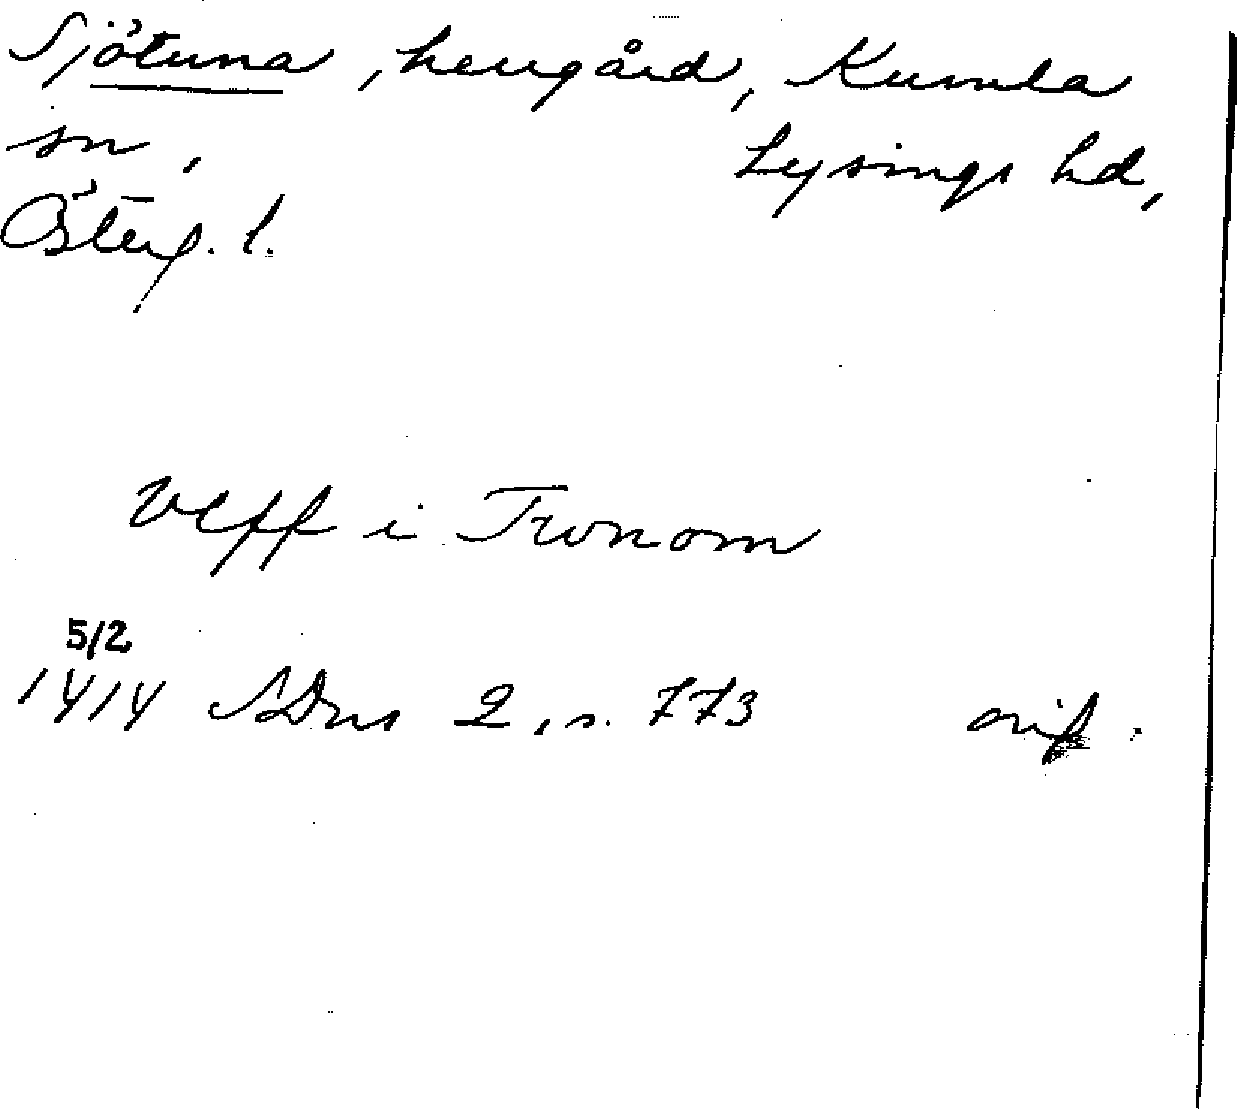 Sjötuna, herrgård, Kumla
sn, Lysings hd,
Österg. l.
uppf i Tronom
5/2
1414 SDns 2, s. 773 orig.